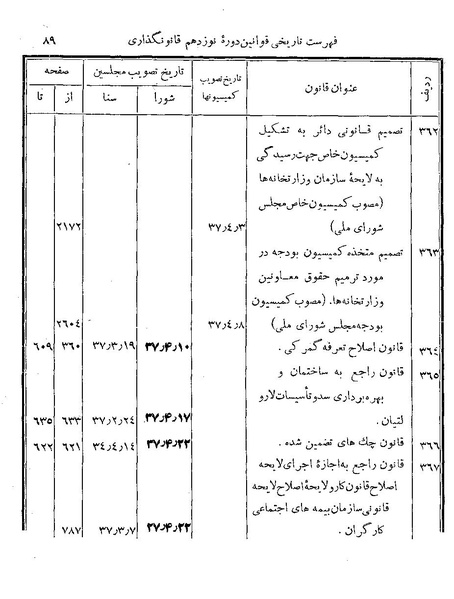 فهرست تاریخی قوانین دورهٔ نوزدهم قانونگذاری ۸۹
ردیف عنوان قانون تاریخ تصویب کمیسیونها تاریخ تصویب مجلسین صفحه
شورا سنا از تا
۳۶۲ تصمیم قانونی دائر به تشکیل
کمیسیون خاص جهت رسیدگی
به لایحهٔ سازمان وزارتخانه‌ها
(مصوب کمیسیون خاص مجلس
شورای ملی) ۳۷٫۴٫۳ ۲۱۷۲
۳۶۳ تصمیم متخذه کمیسیون بودجه در
مورد ترمیم حقوق معاونین
وزارتخانه‌ها. (مصوب کمیسیون
بودجه مجلس شورای ملی) ۳۷٫۴٫۸ ۲۶۰۴
۳۶۴ قانون اصلاح تعرفه گمرکی . ۳۷٫۴٫۱۰ ۳۷٫۳٫۱۹ ۳۶۰ ۶۰۹
۳۶۵ قانون راجع به ساختمان و
بهره‌برداری سد و تأسیسات لار و
لتیان . ۳۷٫۴٫۱۷ ۳۷٫۲٫۲۴ ۶۳۳ ۶۳۵
۳۶۶ قانون چك های تضمین شده . ۳۷٫۴٫۲۲ ۳۴٫۴٫۱۴ ۶۲۱ ۶۲۲
۳۶۷ قانون راجع به اجازهٔ اجرای لایحه
اصلاح قانون کار و لایحهٔ اصلاح لایحه
قانونی سازمان بیمه های اجتماعی
کارگران . ۲۷٫۴٫۲۲ ۳۷٫۳٫۷ ۷۸۷